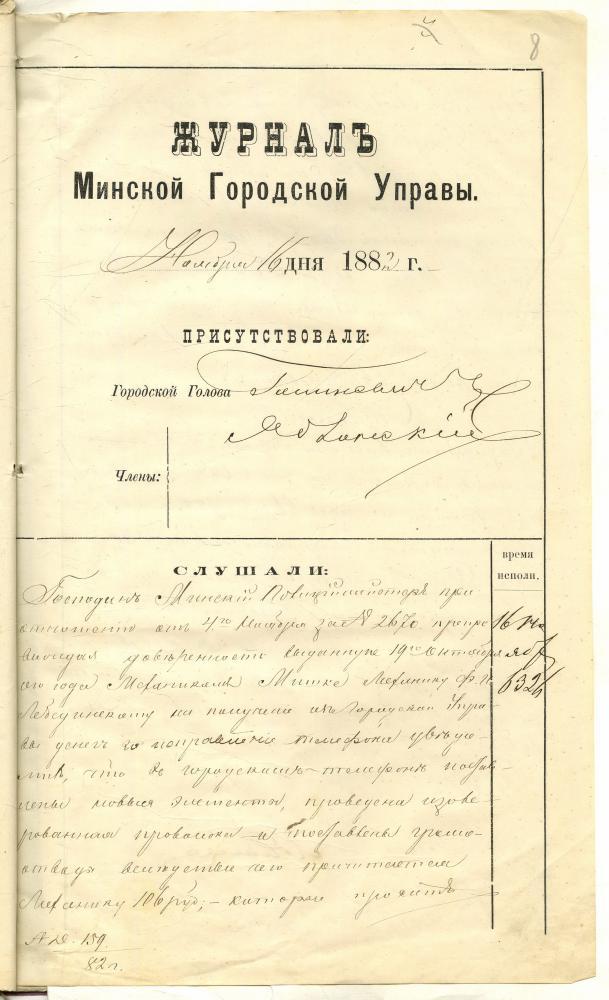 8
ЖУРНАЛЪ
Минской Городской Управы.
Ноября 16 дня 1882 г.
ПРИСУТСТВОВАЛИ:
Городской Голова
Члены:
СЛУШАЛИ:
время
исполн.
Господинъ Минскій Полиціймейстеръ при
отношеніи отъ 4го Ноября за № 2670 препро
довѣренность выданную 19го Октября
его года Механикомъ Механику
на полученіе изъ Городской Упра
вы денегъ за исправленіе телефона увѣдо
милъ, что въ городскомъ телефонѣ постав
лены новые элементы, проведена изоли
рованная проволока и поставлены громо
отводы вслѣдствіе чего причитается
Механику 106 руб; – которые проситъ
16 
6326
А № 159
82 г.